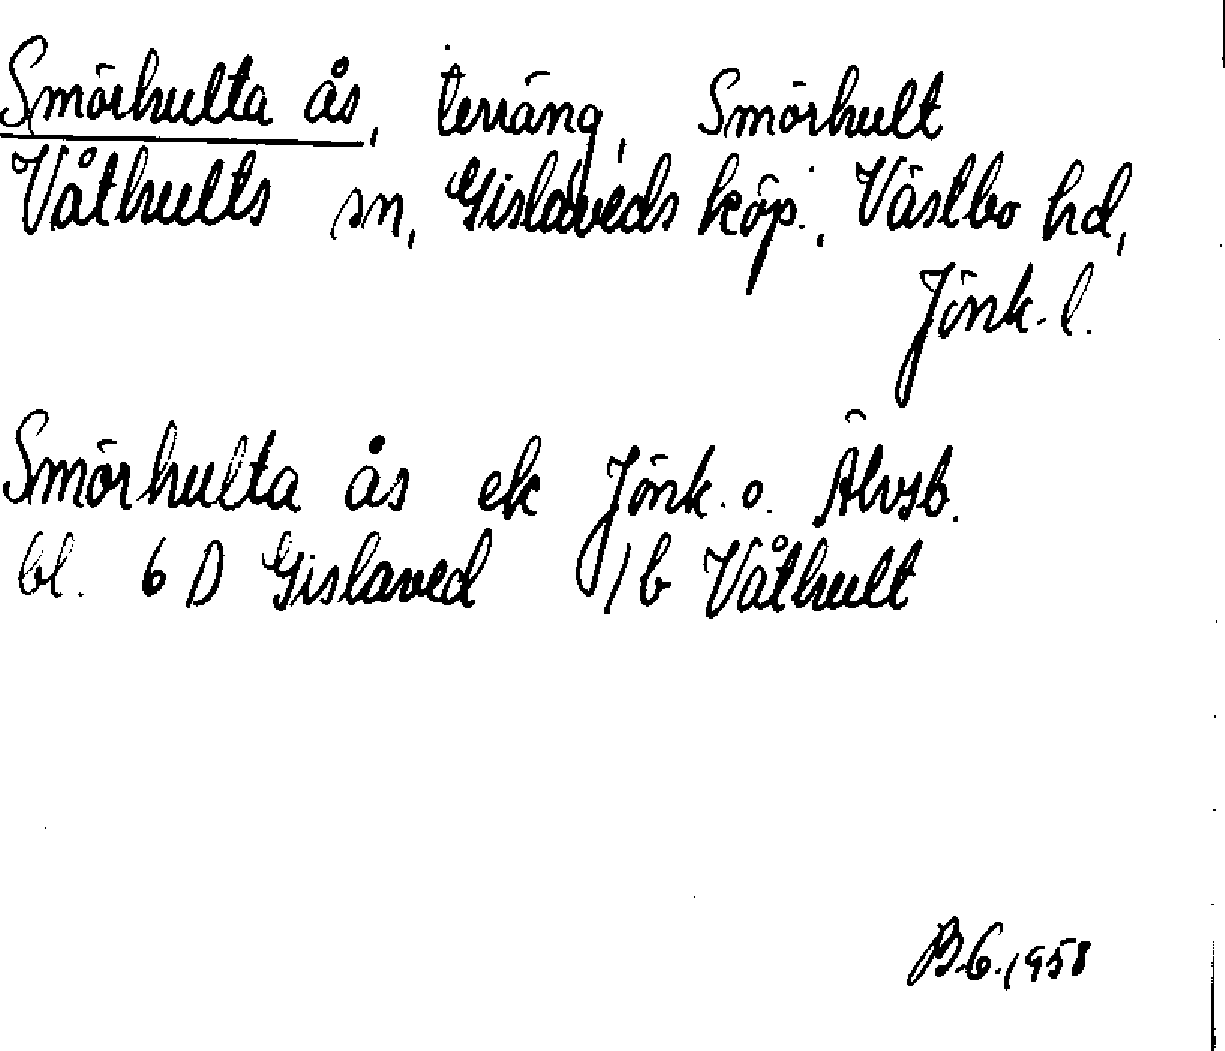 Smörhulta ås, terräng, Smörhult
Våthults sn, Gislaveds köp., Västbo hd,
Jönk. l.
Smörhulta ås ek Jönk. o. Älvsb.
bl. 6 D Gislaved 1 b Våthult
B.G. 1958